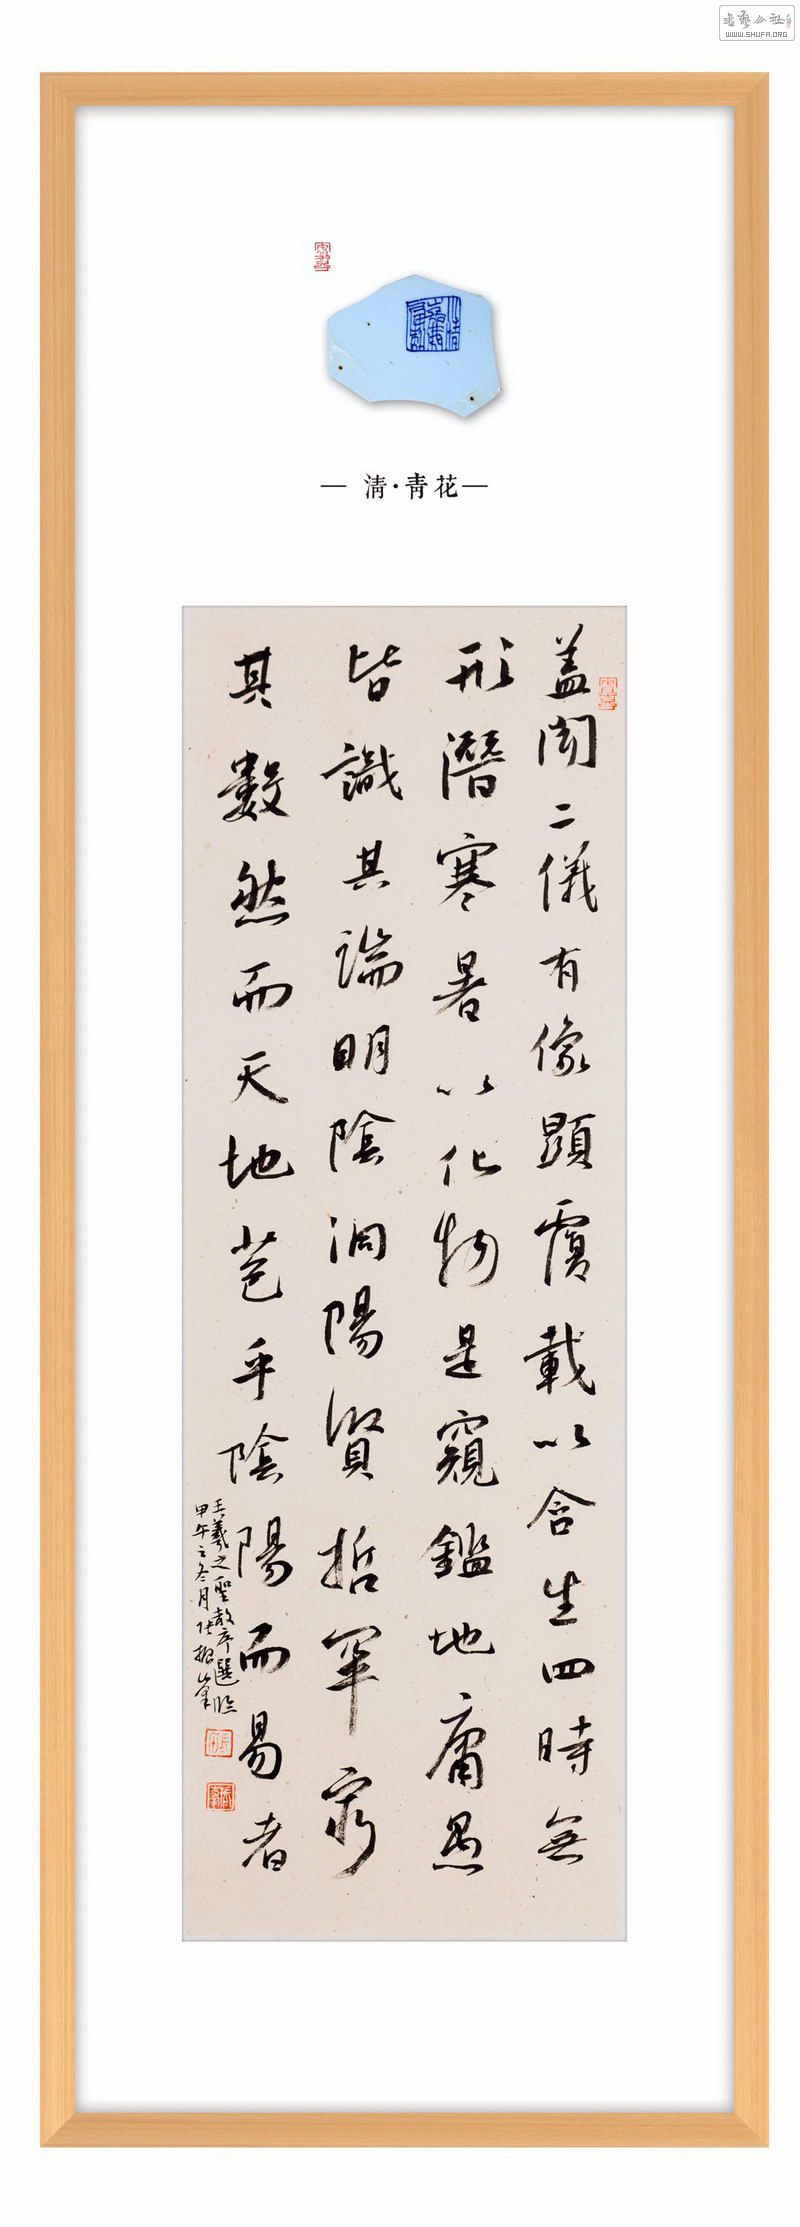 書藝公社
WWW.SHUFA.ORG
清·青花
盖聞二儀有像顯覆載以含生四時無
形潛寒暑以化物是窺鑑地庸愚
皆識其端明陰洞陽賢哲罕窮
其數然而天地苞乎陰陽而易者
王羲之聖教序選臨
甲午之冬月